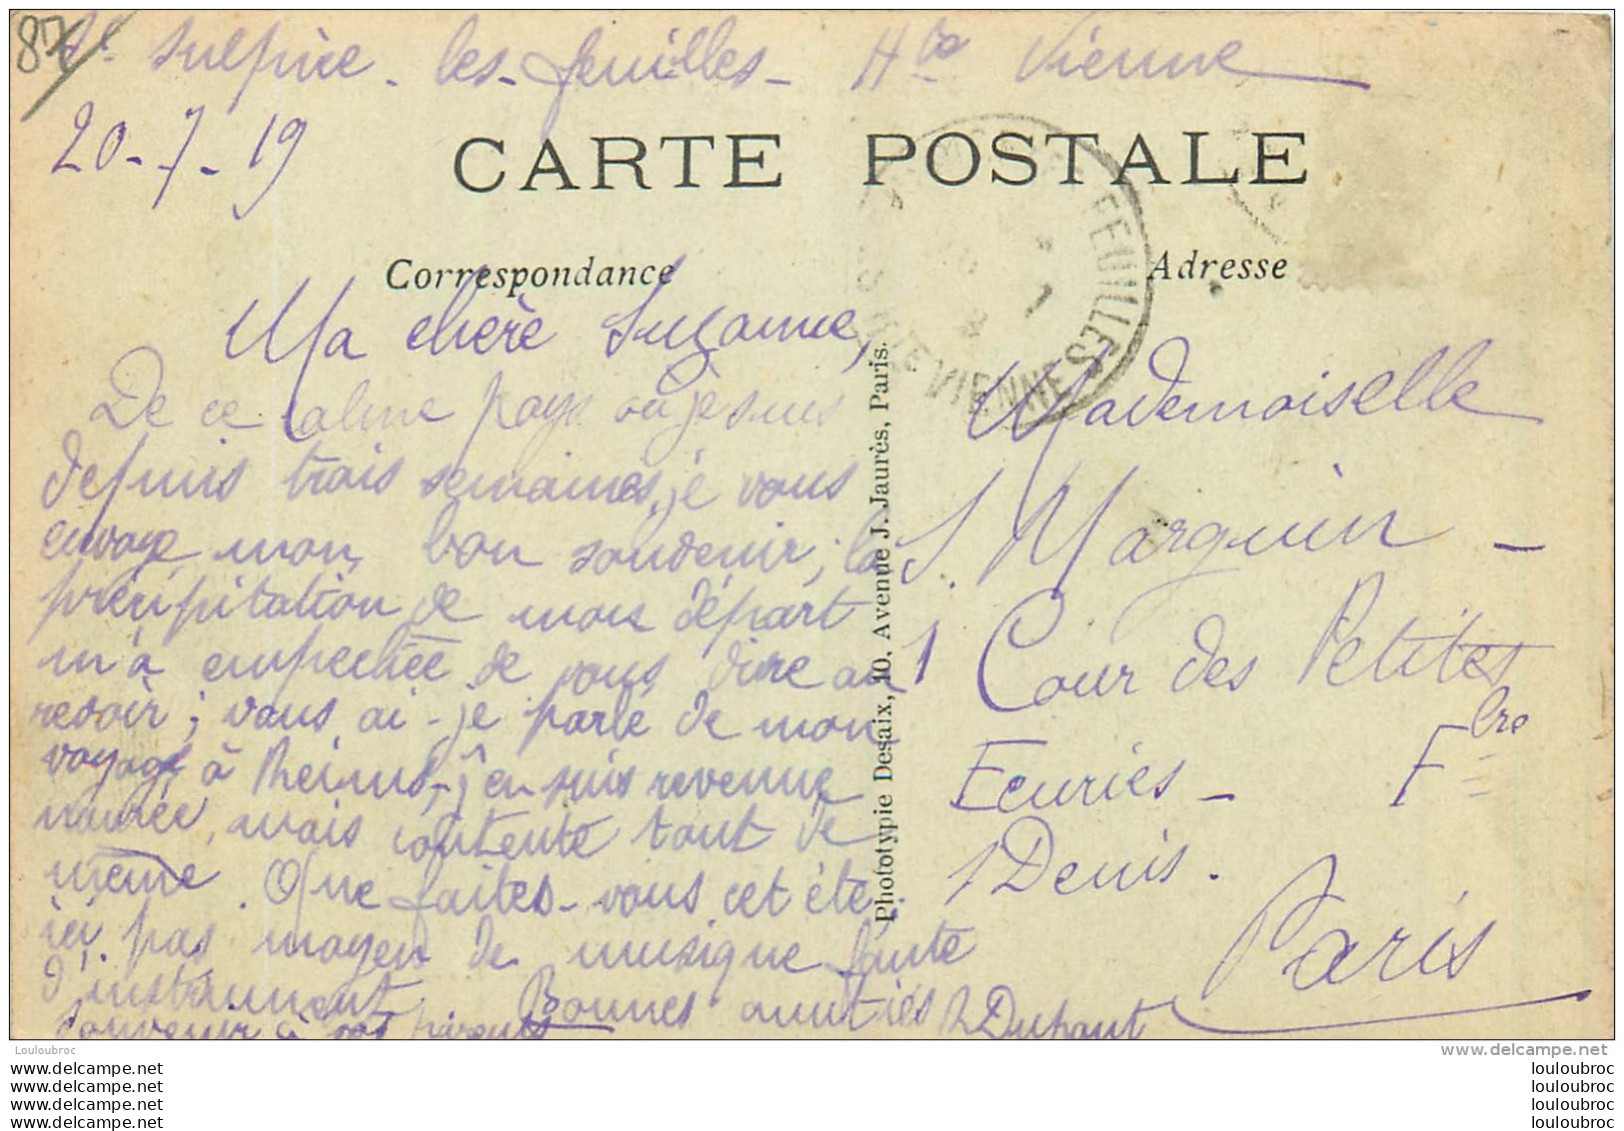 87
St Sulpice - les - feuilles - Hte Vienne
20 - 7 - 19
CARTE POSTALE
Correspondance
Adresse
FEUILLES
VIENNE
Ma chère Suzanne,
De ce calme pays où je suis
depuis trois semaines, je vous
envoye mon bon souvenir ; la
précipitation de mon départ
m'a empechée de vous dire au
revoir ; vous ai - je parlé de mon
voyage à Reims, j'en suis revenue
navrée, mais contente tout de
même. Que faites - vous cet été,
ici pas moyen de musique faute
d'instrument. Bonnes amitiés
souvenir à vos parents
R Duhaut
Phototypie Desaix, 10. Avenue J. Jaurès, Paris.
Mademoiselle
S. Marguin -
1 Cour des Petites
Ecuries - Fbre
S Denis.
Paris
Louloubroc
www.delcampe.net
www.delcampe.net louloubroc
www.delcampe.net louloubroc
www.delcampe.net louloubroc
www.delcampe.net louloubroc